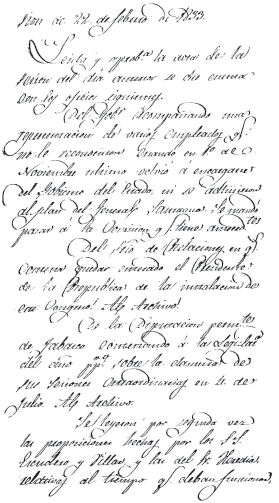 sion de 22 de febrero de 1833.
Leida y aprob.ª la acta de la
sesion del dia anterior se dio cuenta
con los oficios siguientes.
Del Gob.º acompañando una
de varios empleados q.e
no le reconocieron cuando en 1.º de
Noviembre ultimo volvió á encargarse
del Gobierno del Estado, ni se adhirieron
al plan del General Santaana. Se mandó
pasar á la Comision
Del Srio de Relaciones en q.e
comunica quedar enterado el Presidente
de la Republica de la instalacion de
este Congreso. Al Archivo.
De la Diputacion perm.te
de Jalisco comunicando á la Legislat.ª
del sobre la clausura de
sus sesiones extraordinarias en 4 de
Julio. Al Archivo.
Se leyeron por segunda vez
las proposiciones hechas por los S.S.
Escudero y Villar, y las del Sr. Heredia
relativas al tiempo q.e deban funcionar